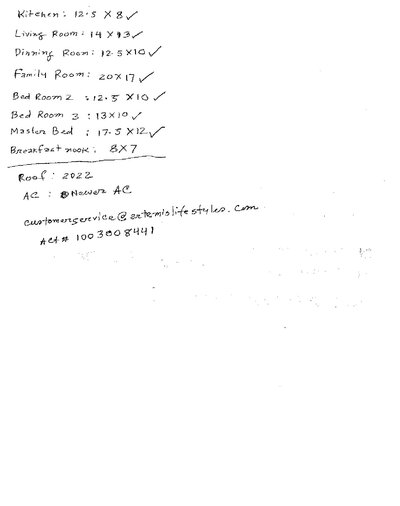 Kitchen: 12.5 X 8 ✓
Living Room: 14 X 13 ✓
Dinning Room: 12.5 X 10 ✓
Family Room: 20 X 17 ✓
Bed Room 2 : 12.5 X 10 ✓
Bed Room 3 : 13 X 10 ✓
Master Bed : 17.5 X 12 ✓
Breakfast nook: 8 X 7
Roof: 2022
AC : Newer AC
customerservice@artemislifestyles.com
Act # 1003008441